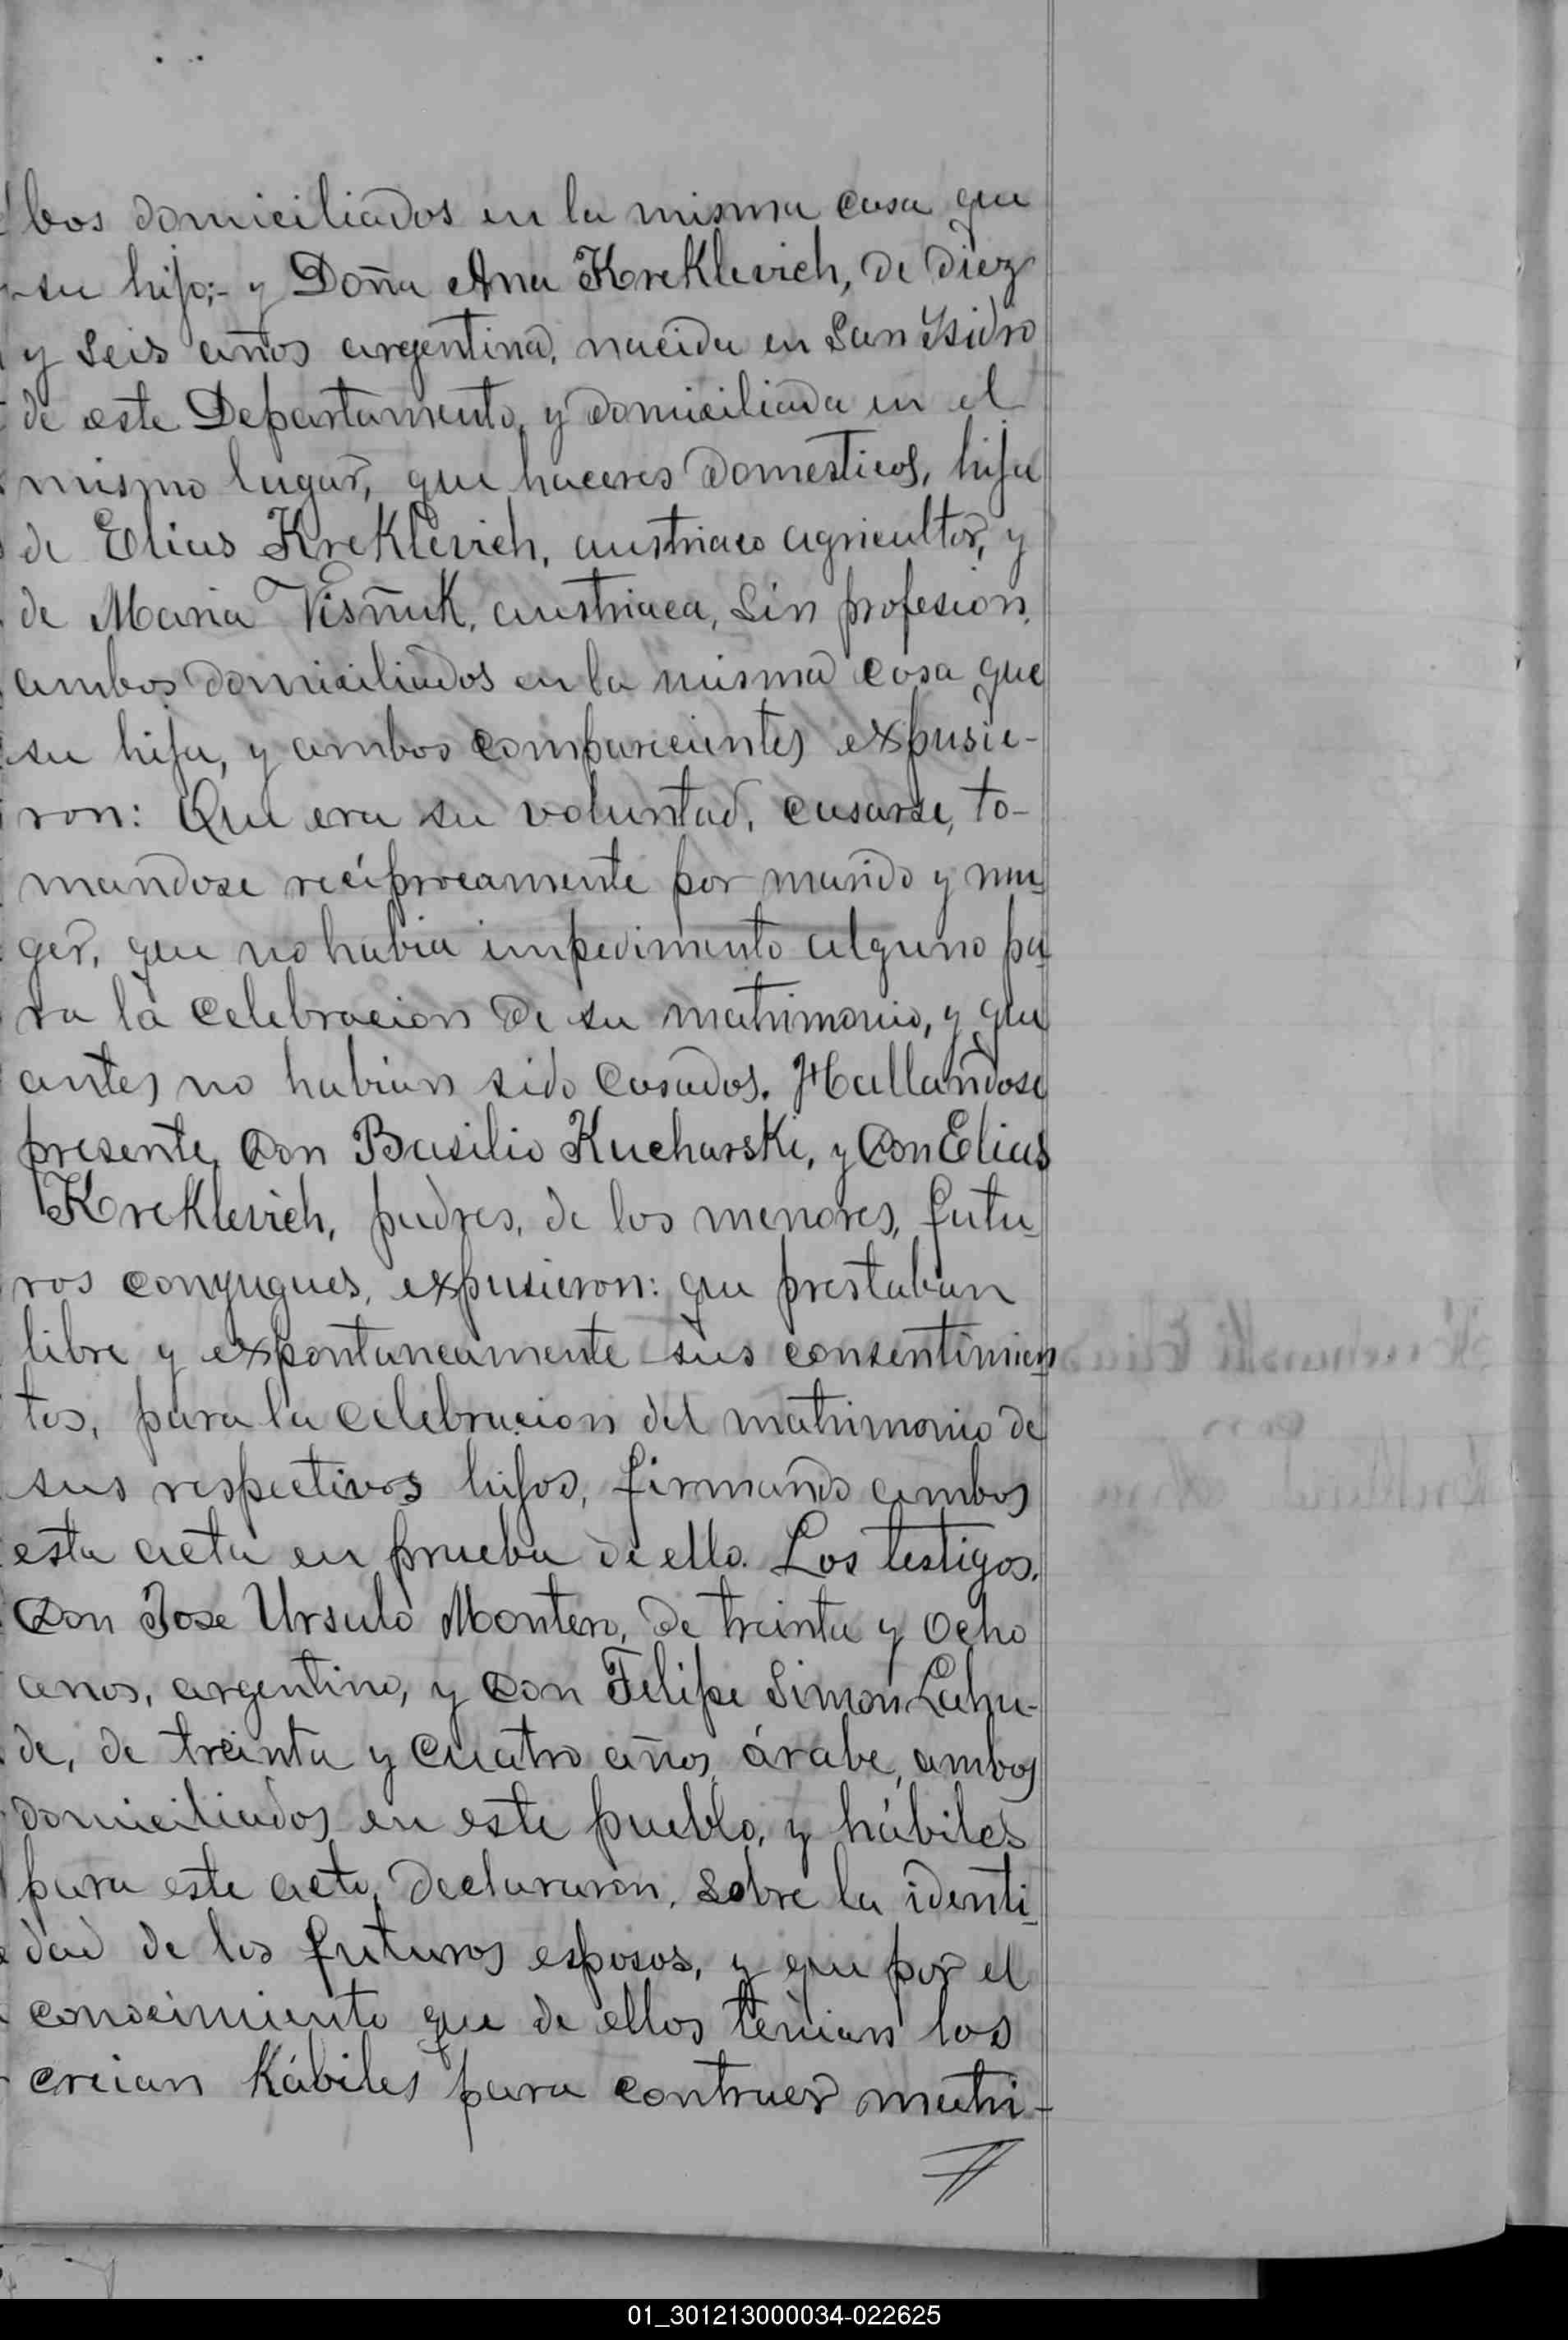 bos domiciliados en la misma casa que
su hijo;- y Doña Ana Kreklevich, de diez
y seis años argentina, nacida en San Ysidro
de este Departamento, y domiciliada en el
mismo lugar, que haceres domesticos, hija
de Elias Kreklevich, austriaco agricultor, y
de Maria Visñuk, austriaca, sin profesion,
ambos domiciliados en la misma casa que
su hija, y ambos comparecientes expusie-
ron: Que era su voluntad, casarse, to-
mandose recíprocamente por marido y mu-
ger, que no habia impedimento alguno pa-
ra la celebracion de su matrimonio, y que
antes no habian sido casados. Hallandose
presente, Don Basilio Kucharski, y Don Elias
Kreklevich, padres, de los menores, futu-
ros conyugues, expusieron: que prestaban
libre y expontaneamente sus consentimien
tos, para la celebracion del matrimonio de
sus respectivos hijos, firmando ambos
esta acta en prueba de ello. Los testigos,
Don Jose Ursulo Montero, de treinta y ocho
anos, argentino, y Don Felipe Simon Lahu-
de, de treinta y cuatro años, árabe, ambos
domiciliados en este pueblo, y hábiles
para este acto, declararon, sobre la identi-
dad de los futuros esposos, y que por el
conocimiento que de ellos tenian los
creian hábiles para contraer matri-
01_301213000034-022625